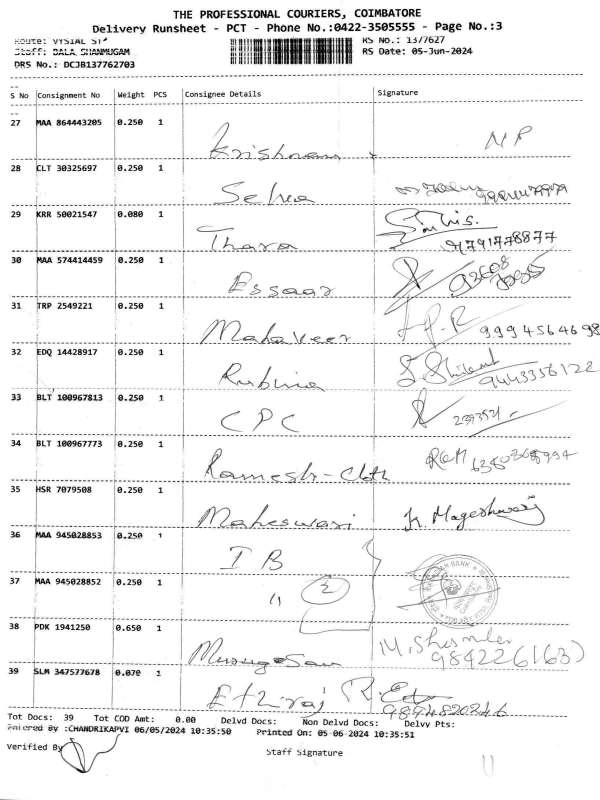 THE PROFESSIONAL COURIERS, COIMBATORE
Delivery Runsheet - PCT - Phone No.:0422-3505555 - Page No.:3
Route: VYSIAL ST
RS No.: 1377627
Staff: BALA SHANMUGAM
RS Date: 05-Jun-2024
DRS No.: DCJB137762703
S No Consignment No Weight PCS Consignee Details Signature
27 MAA 864443205 0.250 1 Krishnan NP
28 CLT 30325697 0.250 1 Selva
29 KRR 50021547 0.080 1 Thara 9791778877
30 MAA 574414459 0.250 1 Essaar
31 TRP 2549221 0.250 1 Mahaveer 9994564698
32 EDQ 14428917 0.250 1 Rubina 9443356122
33 BLT 100967813 0.250 1 CPC
34 BLT 100967773 0.250 1 Ramesh-Cloth
35 HSR 7079508 0.250 1 Maheswari K. Mageshwari
36 MAA 945028853 0.250 1 IB
37 MAA 945028852 0.250 1 " 2
38 PDK 1941250 0.650 1 Murugesan 9842261631
39 SLM 347577678 0.070 1 Ethiraj 9894820346
Tot Docs: 39 Tot COD Amt: 0.00 Delvd Docs: Non Delvd Docs: Delvy Pts:
Entered By :CHANDRIKAPVI 06/05/2024 10:35:50 Printed On: 05-06-2024 10:35:51
Verified By
Staff Signature